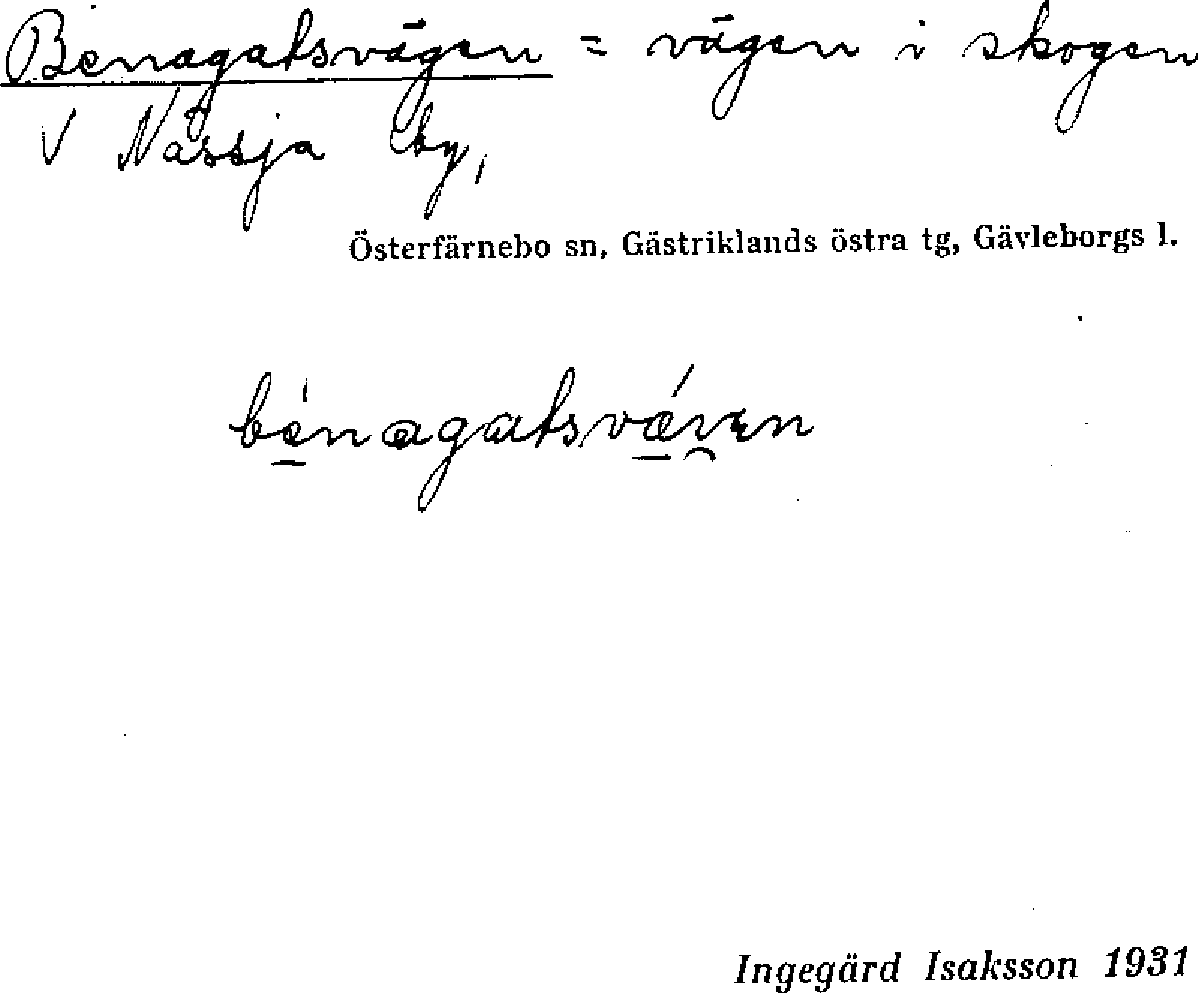 Benagatsvägen = vägen i skogen
V Nässja by,
Österfärnebo sn, Gästriklands östra tg, Gävleborgs l.
bénagatsvä́ɤen
Ingegärd Isaksson 1931